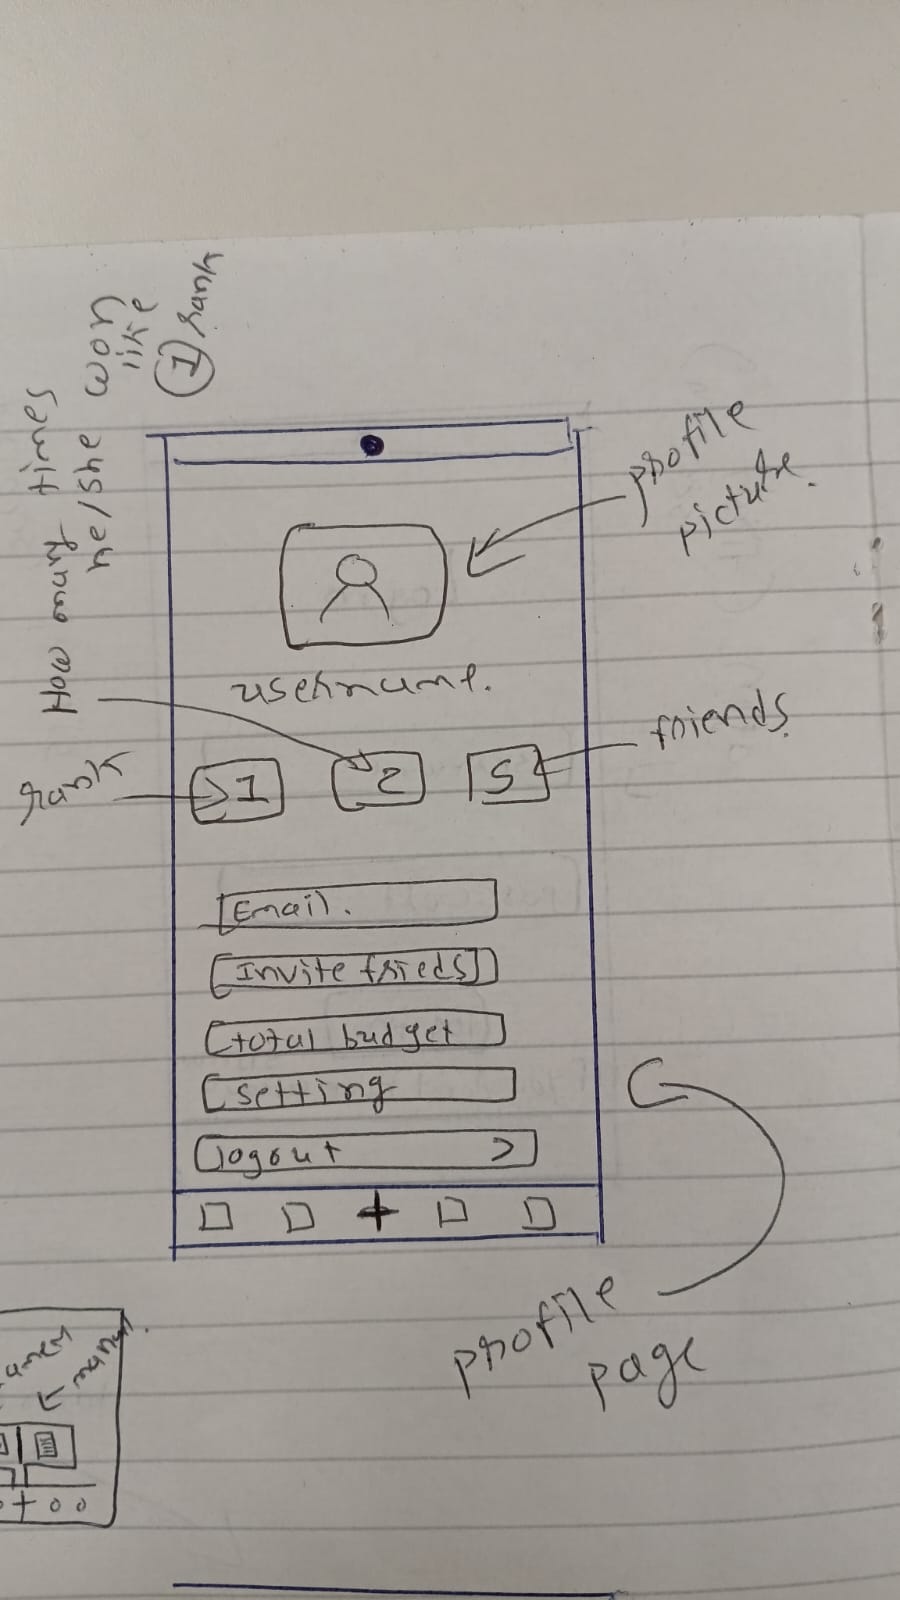 How many times
he/she won
like
1 rank
profile
picture.
username.
friends.
rank
1
2
5
Email.
Invite frieds
total budget
setting
logout >
+
profile
page